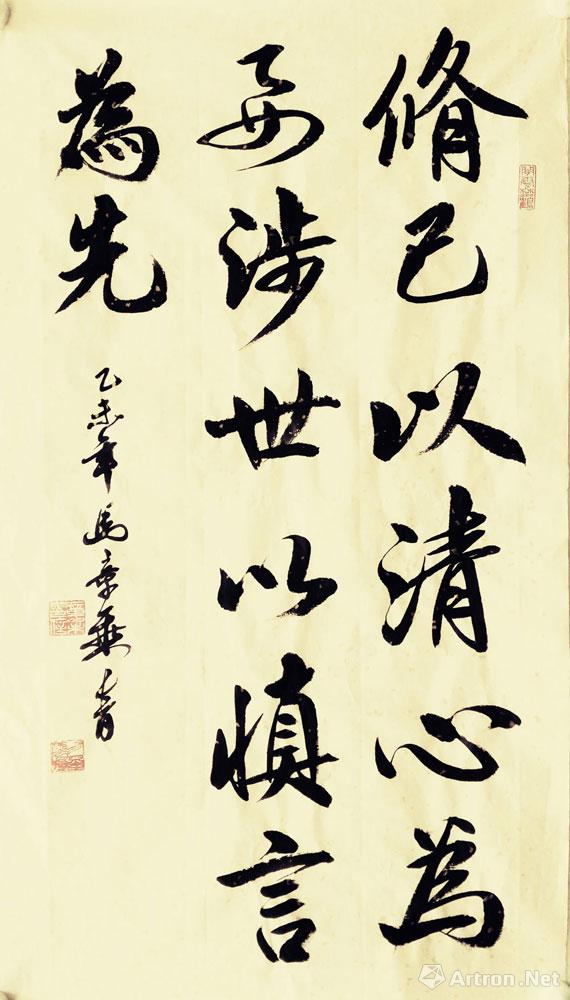 脩己以清心為
要涉世以慎言
為先
乙未年馬章乘書
Artron.Net